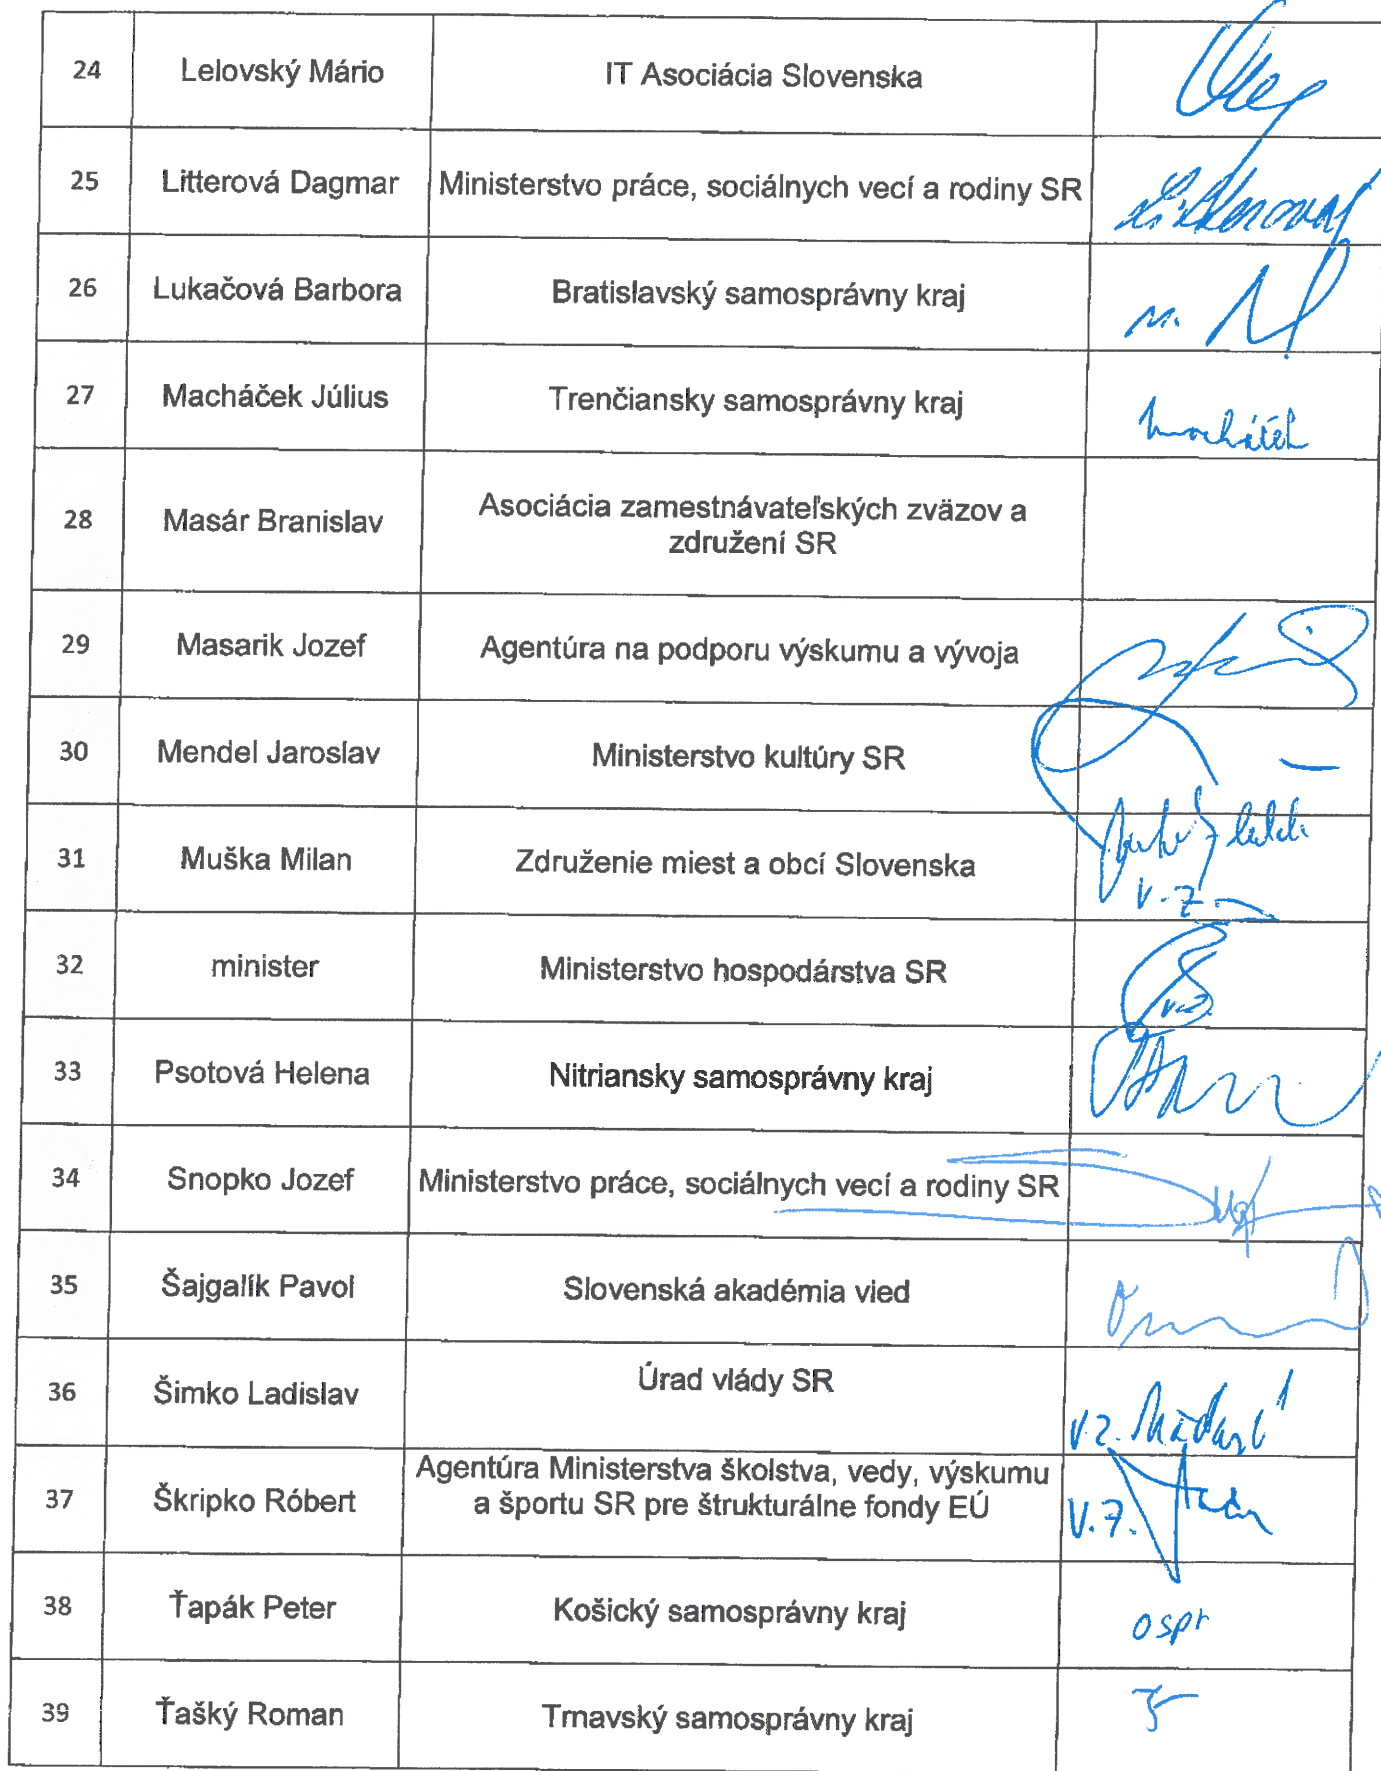 24 Lelovský Mário IT Asociácia Slovenska
25 Litterová Dagmar Ministerstvo práce, sociálnych vecí a rodiny SR Litterová
26 Lukačová Barbora Bratislavský samosprávny kraj
27 Macháček Július Trenčiansky samosprávny kraj
28 Masár Branislav Asociácia zamestnávateľských zväzov a
združení SR
29 Masarik Jozef Agentúra na podporu výskumu a vývoja
30 Mendel Jaroslav Ministerstvo kultúry SR
31 Muška Milan Združenie miest a obcí Slovenska
v.z.
32 minister Ministerstvo hospodárstva SR
33 Psotová Helena Nitriansky samosprávny kraj
34 Snopko Jozef Ministerstvo práce, sociálnych vecí a rodiny SR
35 Šajgalík Pavol Slovenská akadémia vied
36 Šimko Ladislav Úrad vlády SR
v.z.
37 Škripko Róbert Agentúra Ministerstva školstva, vedy, výskumu
a športu SR pre štrukturálne fondy EÚ
v.z.
38 Ťapák Peter Košický samosprávny kraj ospr
39 Ťašký Roman Trnavský samosprávny kraj